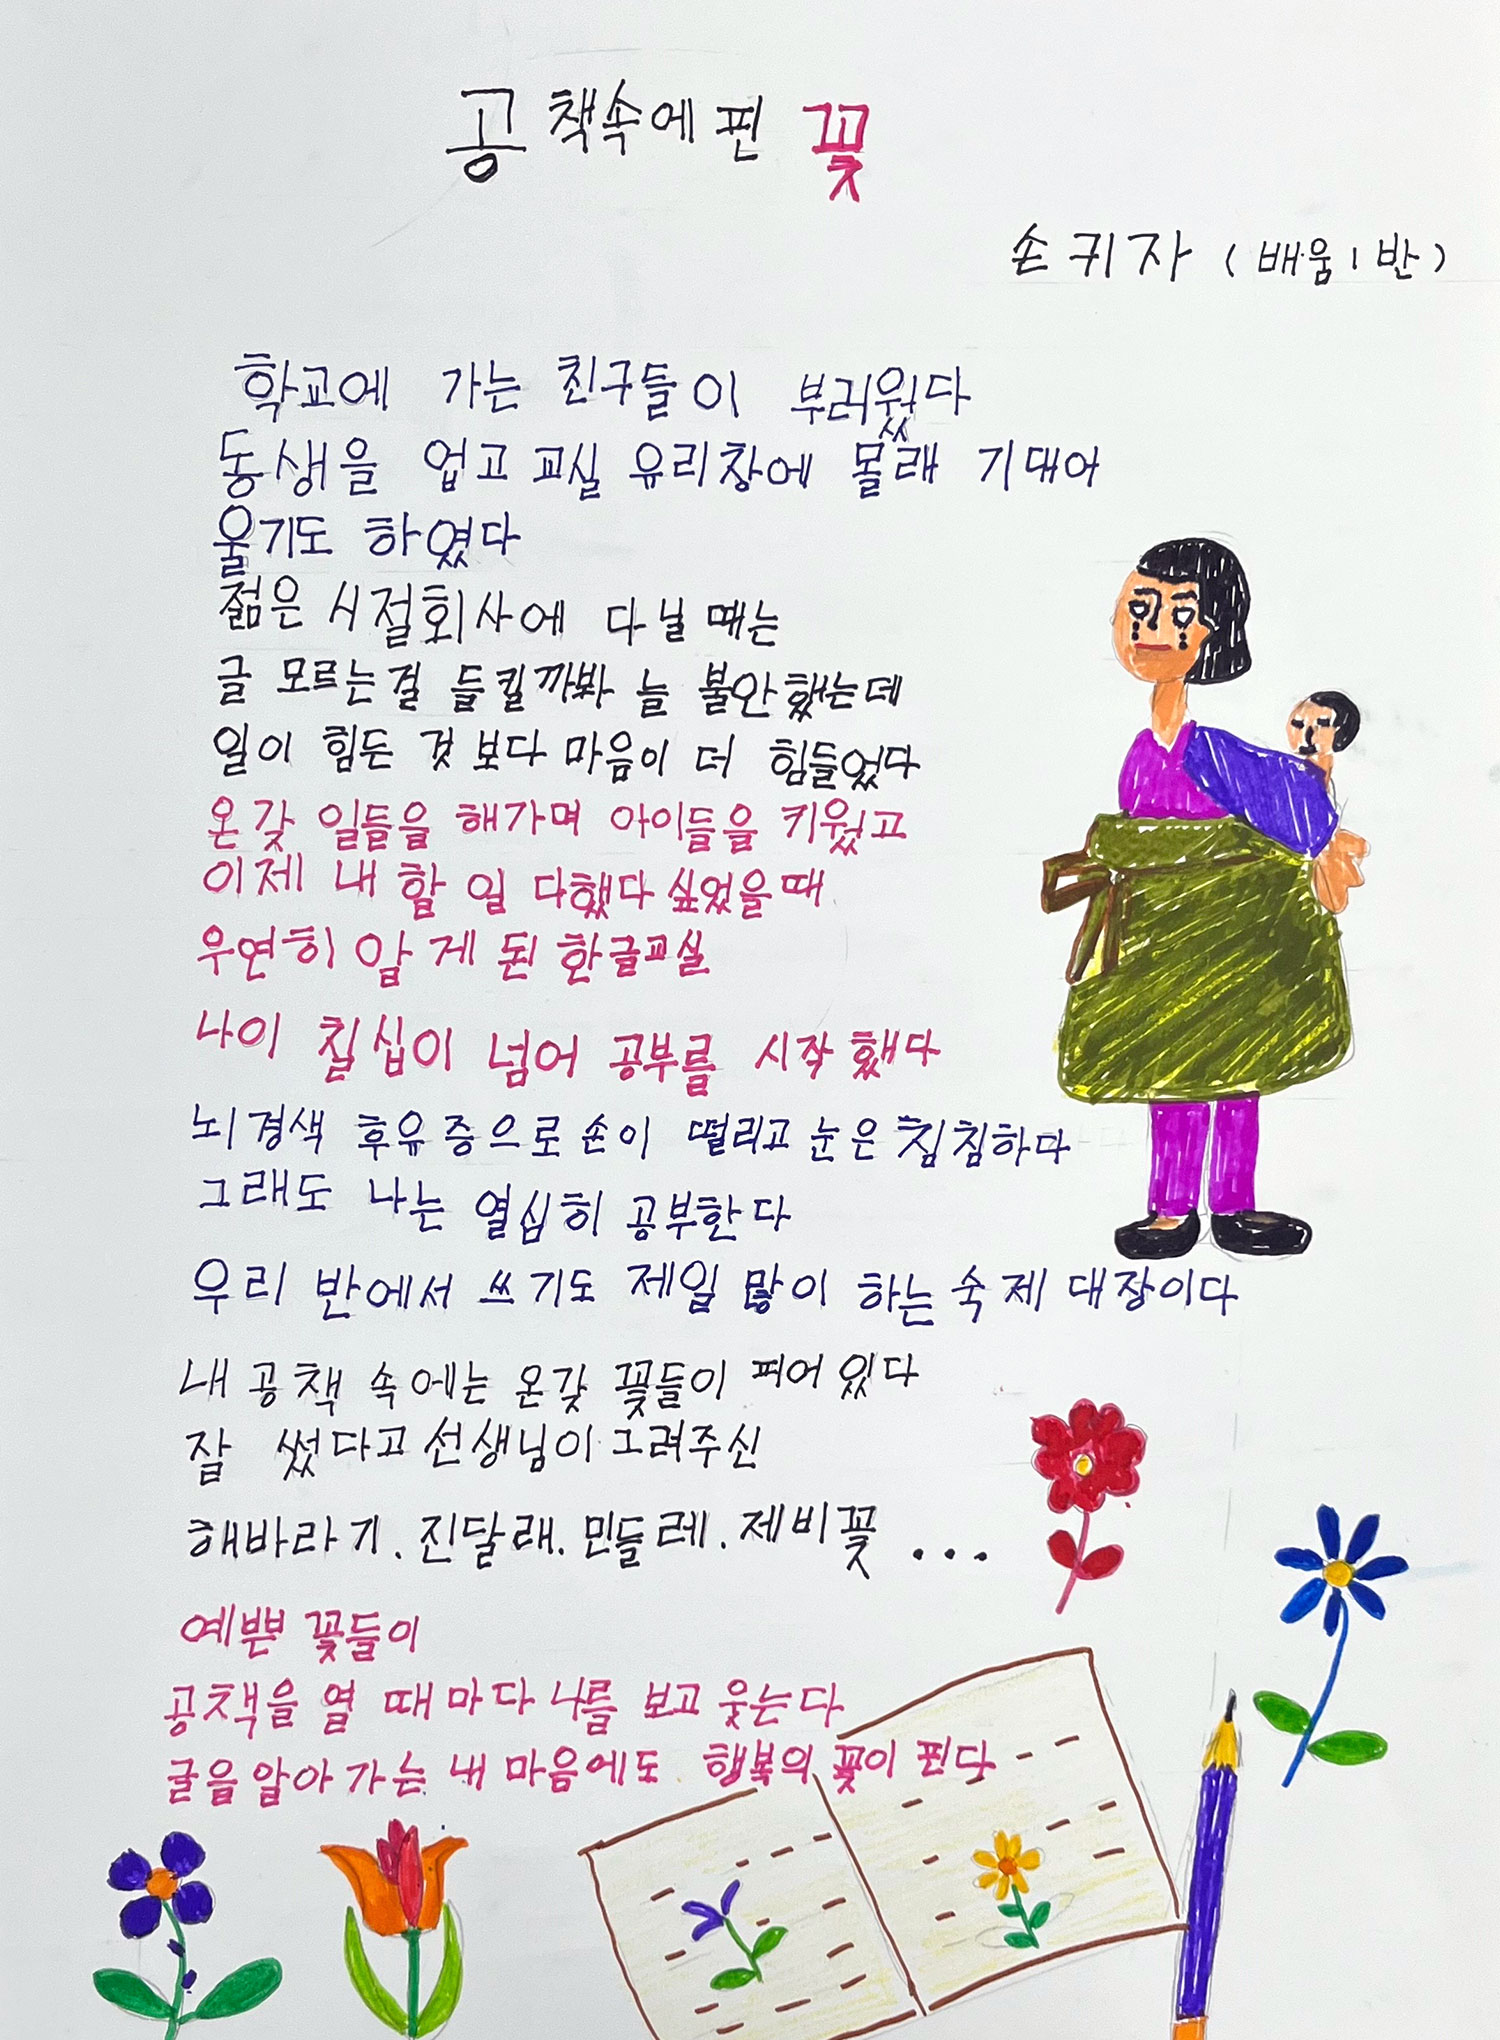 공책속에 핀 꽃
손귀자 (배움1반)
학교에 가는 친구들이 부러웠다
동생을 업고 교실 유리창에 몰래 기대어
울기도 하였다
젊은 시절 회사에 다닐 때는
글 모르는걸 들킬까봐 늘 불안했는데
일이 힘든 것 보다 마음이 더 힘들었다
온갖 일들을 해가며 아이들을 키웠고
이제 내 할 일 다했다 싶었을때
우연히 알게 된 한글교실
나이 칠십이 넘어 공부를 시작했다
뇌경색 후유증으로 손이 떨리고 눈은 침침하다
그래도 나는 열심히 공부한다
우리 반에서 쓰기도 제일 많이 하는 숙제 대장이다
내 공책 속에는 온갖 꽃들이 피어 있다
잘 썼다고 선생님이 그려주신
해바라기. 진달래. 민들레. 제비꽃 ...
예쁜 꽃들이
공책을 열 때마다 나를 보고 웃는다
글을 알아 가는 내 마음에도 행복의 꽃이 핀다